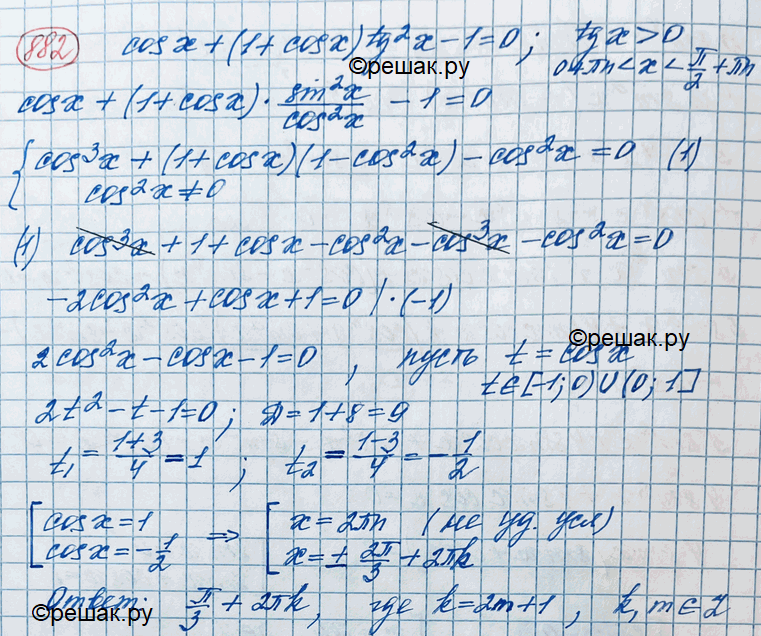 882 cos x + (1 + cos x) tg²x - 1 = 0 ; tg x > 0
©решак.ру 0 + πn < x < π/2 + πn
cos x + (1 + cos x) · sin²x/cos²x - 1 = 0
{ cos³x + (1 + cos x)(1 - cos²x) - cos²x = 0 (1)
cos²x ≠ 0
(1) cos³x + 1 + cos x - cos²x - cos³x - cos²x = 0
-2cos²x + cos x + 1 = 0 | · (-1)
©решак.ру
2cos²x - cos x - 1 = 0 , пусть t = cos x
t ∈ [-1; 0) ∪ (0; 1]
2t² - t - 1 = 0 ; D = 1 + 8 = 9
t₁ = (1+3)/4 = 1 ; t₂ = (1-3)/4 = -1/2
[ cos x = 1 ⇒ [ x = 2πn (не уд. усл)
cos x = -1/2 x = ± 2π/3 + 2πk
Ответ: π/3 + πk, где k = 2m + 1 , k, m ∈ Z
©решак.ру